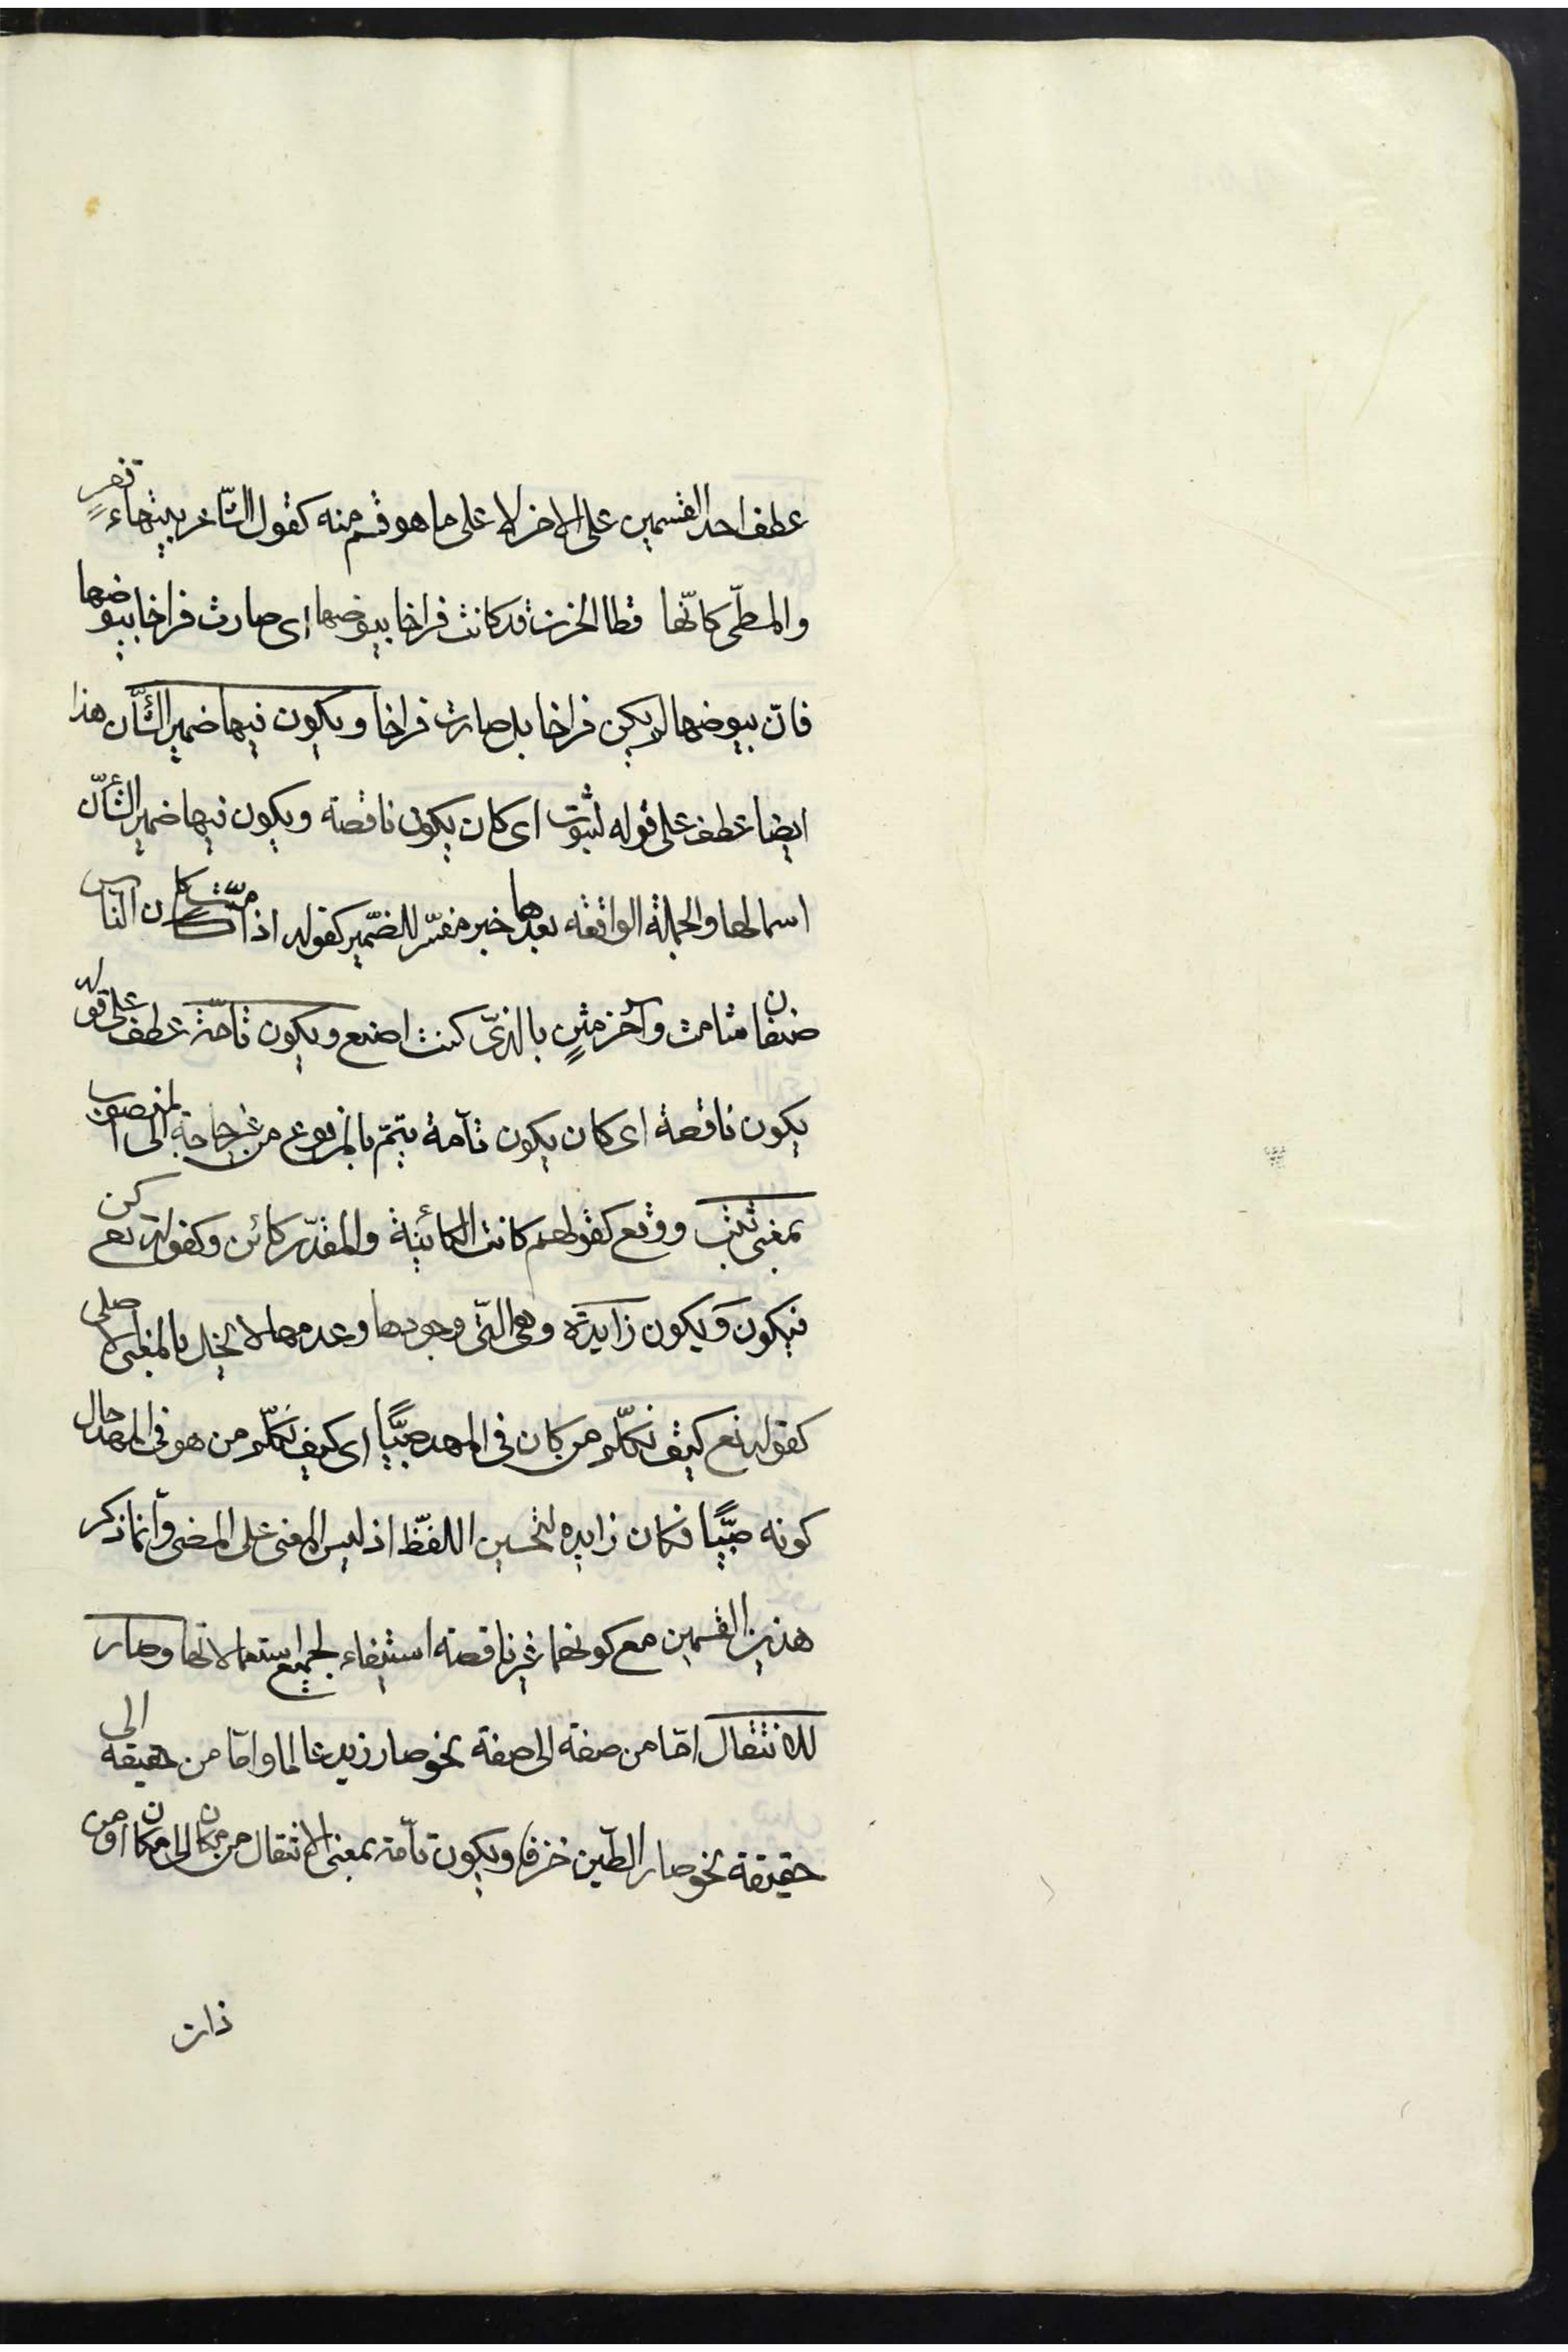 عطف احد القسمين على الاخر لا على ما هو قسم منه كقول الشاعر بتيهاء قفرٍ
والمطىّ كانّها قطا الحزن قد كانت فراخا بيوضها اى صارت فراخا بيوضها
فانّ بيوضها لم يكن فراخا بل صارت فراخا ويكون فيها ضمير الشّأن هذا
ايضا عطف على قوله لثبوت اى كان يكون ناقصة ويكون فيها ضمير الشأنّ
اسما لها والجملة الواقعه بعدها خبر مفسّر للضّمير كقوله اذا متّ كان النّاس
صنفان شامت وآخر مثنٍ بالذىّ كنت اصنع ويكون تامّة عطف على قوله
يكون ناقصة اى كان يكون تآمة يتمّ بالمرفوع من غير حاجة الى المنصوب
بمعنى ثبت ووقع كقولهم كانت الكائنة والمقدّر كائن وكقوله تع كن
فيكون وَيكون زايدة وهى التّى وجودها وعدمها لا يخل بالمعنى الاصلى
كقوله تع كيف نكلّم من كان فى المهد صبيًّا اى كيف نكلّم من هو فى المهد حال
كونه صبيًّا فكان زايده لتحسين اللفظّ اذ ليس المعنى على المضى وانّما ذكر
هذين القسمين مع كونهما غير ناقصة استيفاء لجميع استعمالاتها وصار
للانتقال امّا من صفة الى صفة نحو صار زيد عالما وامّا من حقيقة الى
حقيقة نحو صار الطّين خزفا ويكون تآمة بمعنى الانتقال من مكان الى مكان او من
ذات